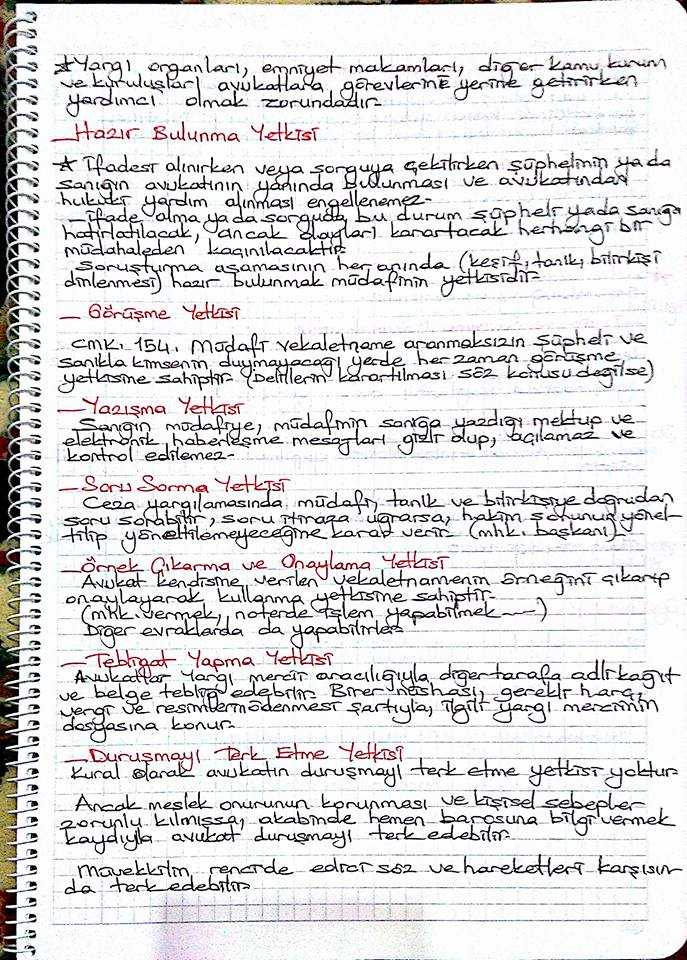 ★ Yargı organları, emniyet makamları, diğer kamu kurum
ve kuruluşları avukatlara görevlerine yerine getirirken
yardımcı olmak zorundadır.
— Hazır Bulunma Yetkisi
★ İfadesi alınırken veya sorguya çekilirken şüphelinin ya da
sanığın avukatının yanında bulunması ve avukatından
hukuki yardım alınması engellenemez.
— İfade alma ya da sorguda, bu durum şüpheli yada sanığa
hatırlatılacak, ancak olayları karartacak herhangi bir
müdahaleden kaçınılacaktır.
Soruşturma aşamasının her anında (keşif, tanık, bilirkişi
dinlenmesi) hazır bulunmak müdafinin yetkisidir.
— Görüşme Yetkisi
CMK. 154. Müdafi vekaletname aranmaksızın şüpheli ve
sanıkla kimsenin duymayacağı yerde her zaman görüşme
yetkisine sahiptir. (Delillerin karartılması söz konusu değilse)
— Yazışma Yetkisi
Sanığın müdafiye, müdafinin sanığa yazdığı mektup ve
elektronik haberleşme mesajları gizli olup, açılamaz ve
kontrol edilemez.
— Soru Sorma Yetkisi
Ceza yargılamasında müdafi, tanık ve bilirkişiye doğrudan
soru sorabilir, soru itiraza uğrarsa, hakim sorunun yönel-
tilip yöneltilemeyeceğine karar verir. (mhk. başkanı)
— Örnek Çıkarma ve Onaylama Yetkisi
Avukat kendisine verilen vekaletnamenin örneğini çıkarıp
onaylayarak kullanma yetkisine sahiptir.
(mhk. vermek, noterde işlem yapabilmek ——)
Diğer evraklarda da yapabilirler.
— Tebligat Yapma Yetkisi
Avukatlar yargı mercii aracılığıyla diğer tarafa adli kağıt
ve belge tebliğ edebilir. Birer nüshası, gerekli harç,
vergi ve resimlerin ödenmesi şartıyla, ilgili yargı merciinin
dosyasına konur.
— Duruşmayı Terk Etme Yetkisi
Kural olarak avukatın duruşmayı terk etme yetkisi yoktur.
Ancak meslek onurunun korunması ve kişisel sebepler
zorunlu kılmışsa, akabinde hemen barosuna bilgi vermek
kaydıyla avukat duruşmayı terk edebilir.
Müvekkilin, rencide edici söz ve hareketleri karşısın-
da terk edebilir.